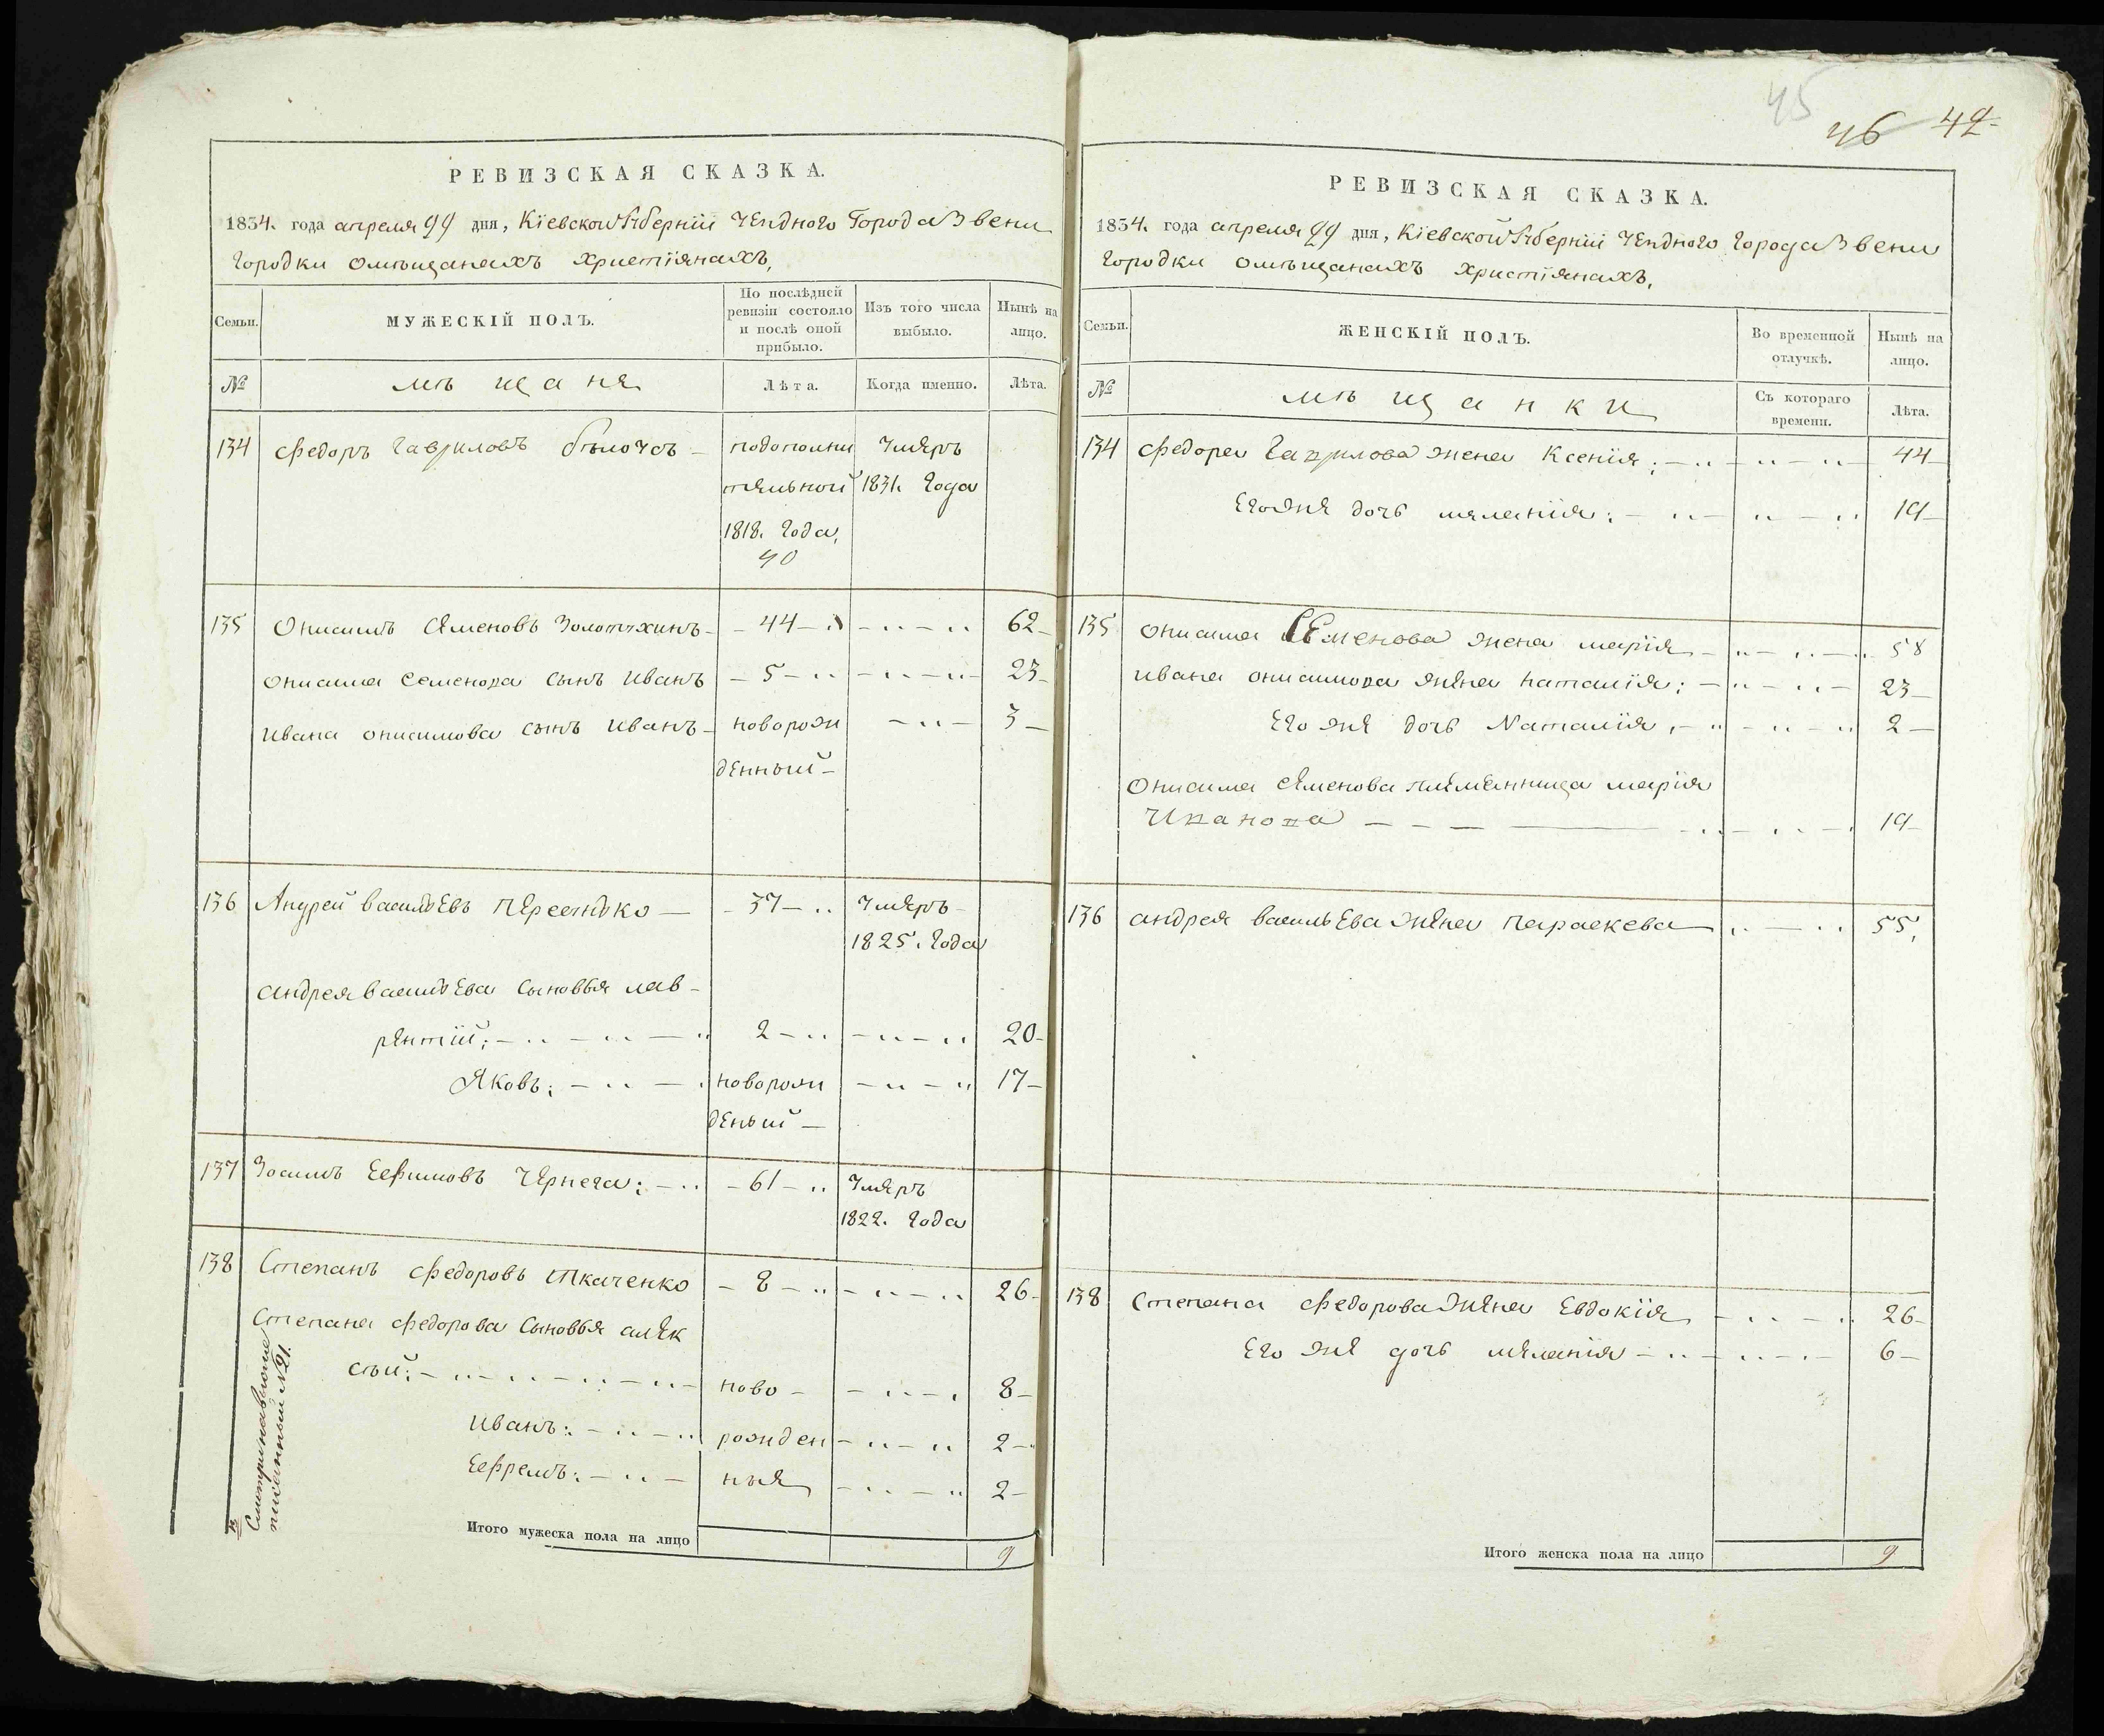 45
46 42
РЕВИЗСКАЯ СКАЗКА.
1834. года апреля 29 дня, Кіевской Губерніи Уезднаго Города Звени
городки омѣщанахъ христіянахъ,
Семьи.
МУЖЕСКІЙ ПОЛЪ.
По послѣдней
ревизіи состояло
и послѣ оной
прибыло.
Изъ того числа
выбыло.
Нынѣ на
лицо.
№
мѣщане
Лѣта.
Когда именно.
Лѣта.
134 Федоръ Гавриловъ
подополни
Умеръ
тельной
1831. Года
1818. Года,
40
135 Онисимъ Семеновъ Золотухинъ 44 62
Онисима Семенова сынъ Иванъ 5 23
Ивана Онисимова сынъ Иванъ новорож 3
денный
136 Андрей Васильевъ 37 Умеръ
1825. Года
Андрея Васильева сыновья Лав
рентій; 2 20
Яковъ; новорож 17
деный
137 Зосимъ Ефимовъ Чернега; 61 Умеръ
1822. Года
138 Степанъ Федоровъ Ткаченко 8 26
Степана Федорова сыновья Алек
сѣй; ново 8
Иванъ; рожден 2
Ефремъ; ные 2
Смотри
писанный №21.
Итого мужеска пола на лицо 9
РЕВИЗСКАЯ СКАЗКА.
1834. года апреля 29 дня, Кіевской Губерніи Уезднаго Города Звени
городки омѣщанахъ христіянахъ,
Семьи.
ЖЕНСКІЙ ПОЛЪ.
Во временной
отлучкѣ.
Нынѣ на
лицо.
№
мѣщанки
Съ котораго
времени.
Лѣта.
134 Федора Гаврилова жена Ксенія; 44
Егоже дочь Меланія; 19
135 Онисима Семенова жена Марія 58
Ивана Онисимова жена Наталія; 23
Его же дочь Наталія, 2
Онисима Семенова племенница Марія
Иванова 19
136 Андрея Васильева жена Параскева 55,
138 Степана Федорова жена Евдокія 26
Его же дочь Меланія 6
Итого женска пола на лицо 9